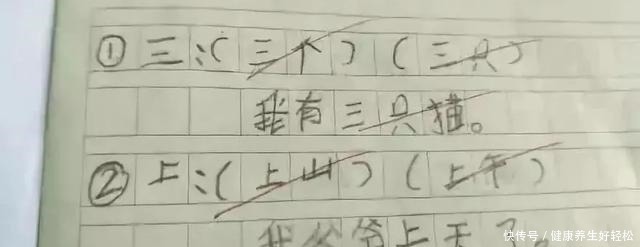 ① 三:(三个)(三只)
我有三只猫。
② 上:(上山)(上午)
我爷爷上天了。
快传号/健康养生好轻松